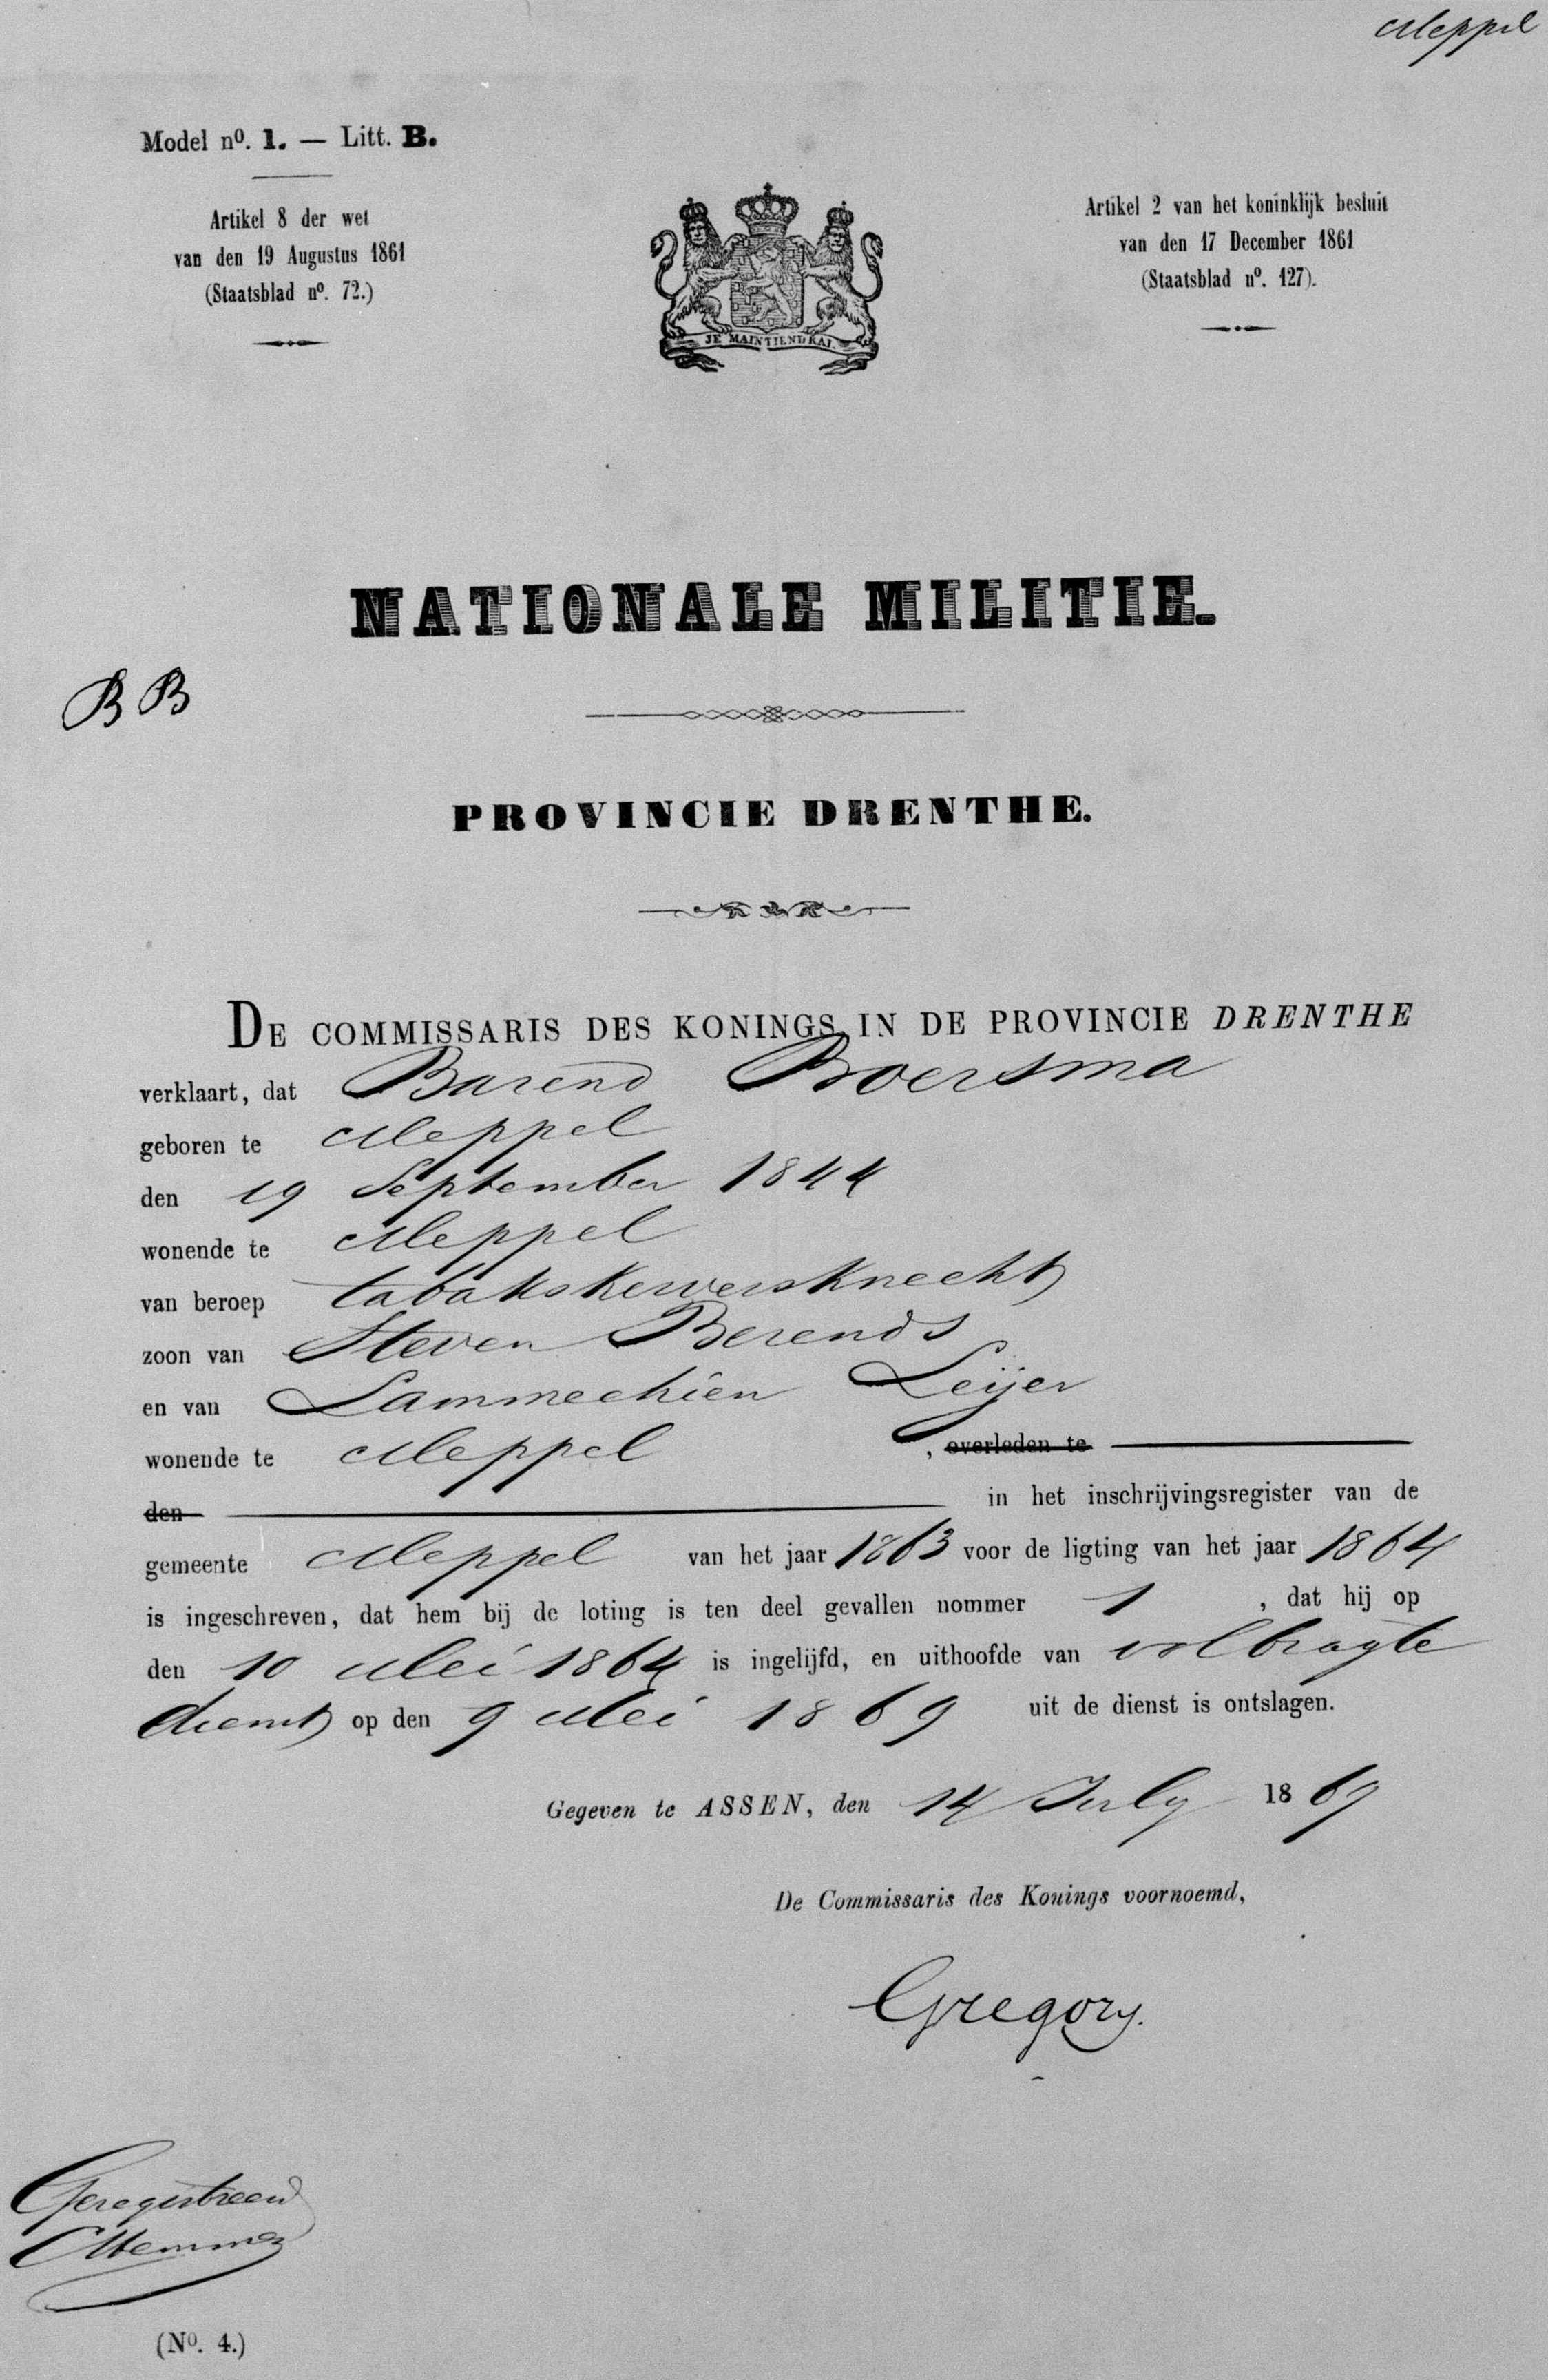 Meppel
Model nº. 1. — Litt. B.
Artikel 8 der wet
van den 19 Augustus 1861
(Staatsblad nº. 72.)
Artikel 2 van het koninklijk besluit
van den 17 December 1861
(Staatsblad nº. 127).
JE MAINTIENDRAI
NATIONALE MILITIE.
B B
PROVINCIE DRENTHE.
DE COMMISSARIS DES KONINGS IN DE PROVINCIE DRENTHE
verklaart, dat Barend Boersma
geboren te Meppel
den 19 September 1844
wonende te Meppel
van beroep tabakskerversknecht
zoon van Steven Berends
en van Lammechien Leijer
wonende te Meppel , overleden te
den in het inschrijvingsregister van de
gemeente Meppel van het jaar 1863 voor de ligting van het jaar 1864
is ingeschreven, dat hem bij de loting is ten deel gevallen nommer 1 , dat hij op
den 10 Mei 1864 is ingelijfd, en uithoofde van volbragte
dienst op den 9 Mei 1869 uit de dienst is ontslagen.
Gegeven te ASSEN, den 14 July 1869
De Commissaris des Konings voornoemd,
Gregory.
Geregistreerd
(Nº. 4.)